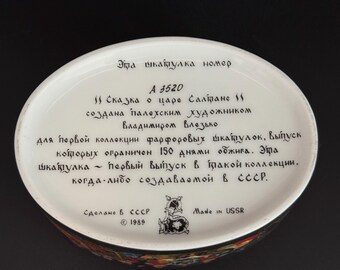 Эта шкатулка номер
А 3520
"Сказка о царе Салтане"
создана палехским художником
владимиром влезько
для первой коллекции фарфоровых шкатулок, выпуск
которых ограничен 150 днями обжига. Эта
шкатулка – первый выпуск в такой коллекции,
когда-либо создаваемой в СССР.
Сделано в СССР Made in USSR
© 1989